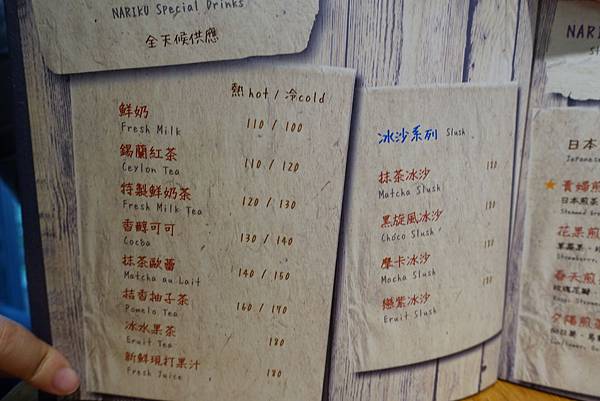 NARIKU Special Drinks
全天候供應
熱hot / 冷cold
鮮奶
Fresh Milk 110 / 100
錫蘭紅茶
Ceylon Tea 110 / 120
特製鮮奶茶
Fresh Milk Tea 120 / 130
香醇可可
Cocoa 130 / 140
抹茶歐蕾
Matcha au Lait 140 / 150
桔香柚子茶
Pomelo Tea 160 / 170
冰水果茶
Fruit Tea 180
新鮮現打果汁
Fresh Juice 180
冰沙系列 Slush
抹茶冰沙
Matcha Slush
黑旋風冰沙
Choco Slush
摩卡冰沙
Mocha Slush
戀紫冰沙
Fruit Slush
NARI
日本
Japanese
貴婦煎
日本煎茶
花果煎
春天煎
玫瑰花瓣
夕陽煎